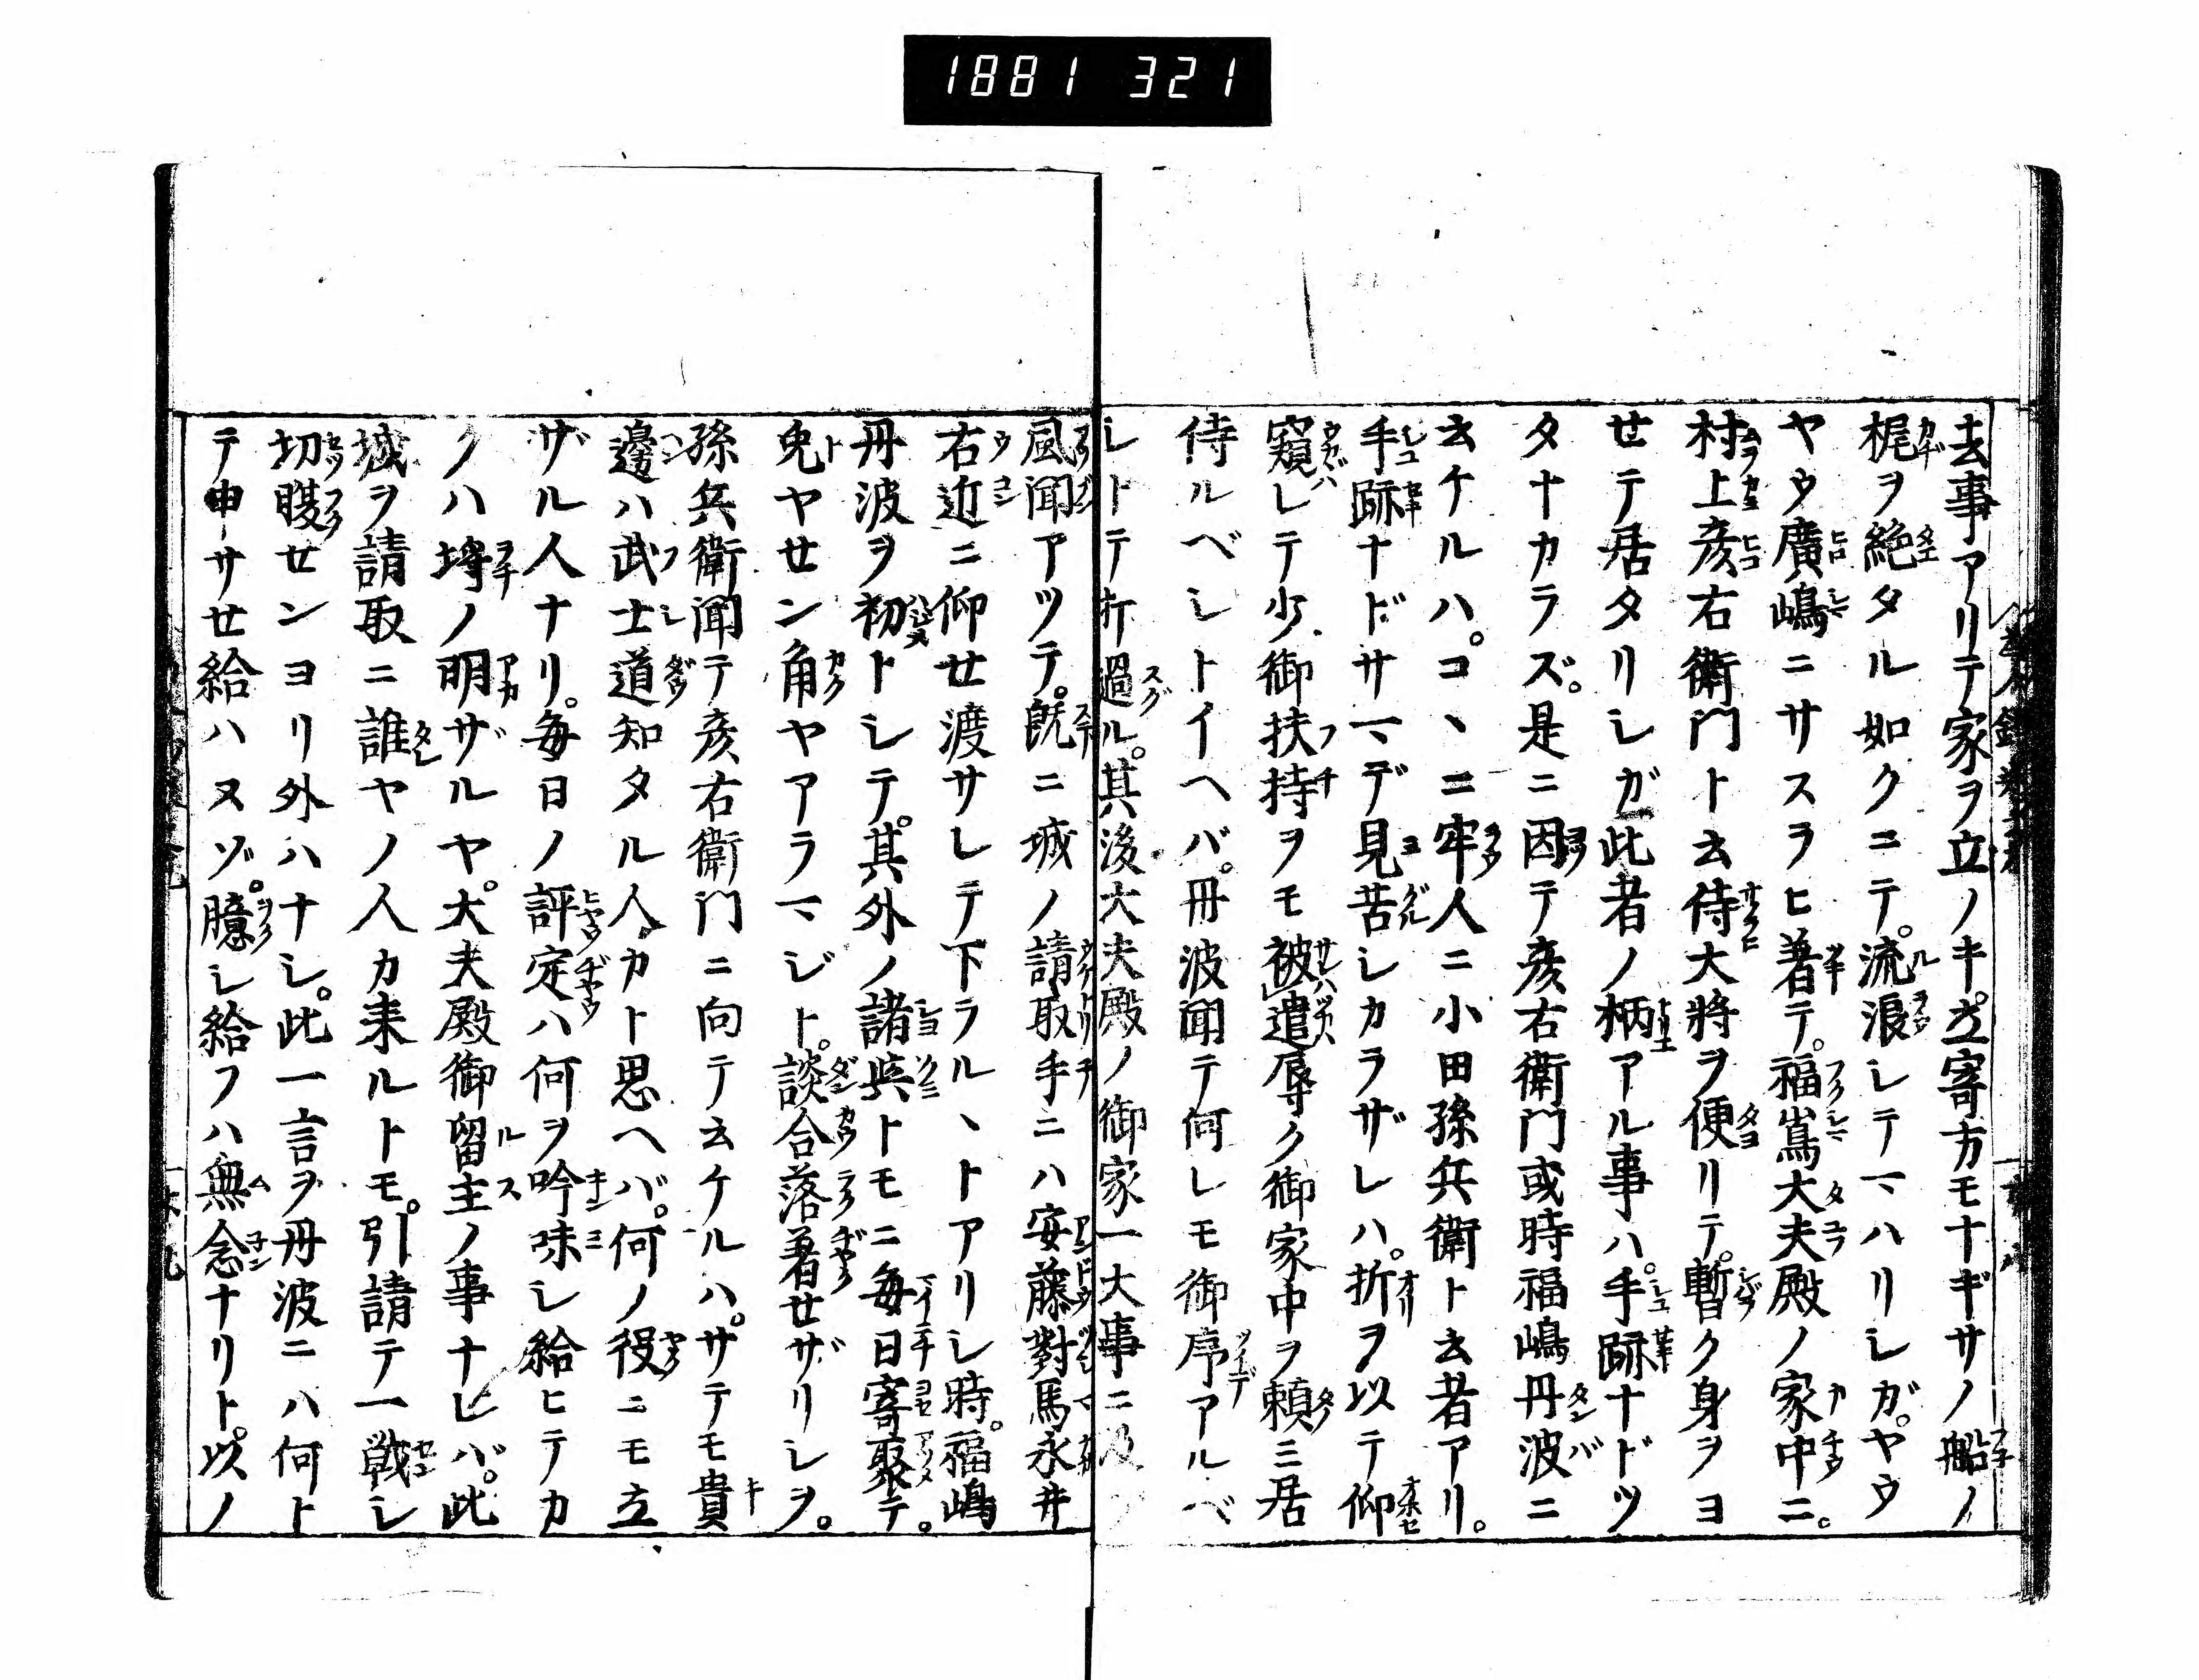 1881 321
去事アリテ家ヲ立ノキ。立寄方モナギサノ船ノ
梶ヲ絶タル如クニテ。流浪シテマハリシガ。ヤウ
ヤウ廣嶋ニサスラヒ著テ。福嶌大夫殿ノ家中ニ。
村上彦右衛門ト云侍大將ヲ便リテ。暫ク身ヲヨ
せテ居タリシガ此者ノ柄アル事ハ。手跡ナドツ
タナカラズ。是ニ因テ彦右衛門或時福嶋丹波ニ
云ケルハ。コヽニ牢人ニ小田孫兵衛ト云者アリ。
手跡ナドサマデ見苦シカラザレハ。折ヲ以テ仰
窺レテ少御扶持ヲモ被遣辱ク御家中ヲ頼ミ居
侍ルベシトイヘバ。丹波聞テ何レモ御序アルベ
シトテ折過ル。其後大夫殿ノ御家一大事ニ及
風聞アツテ。既ニ城ノ請取手ニハ安藤對馬永井
右近ニ仰せ渡サレテ下ラルヽトアリシ時。福嶋
丹波ヲ初トシテ。其外ノ諸兵トモニ毎日寄聚テ。
兎ヤせン角ヤアラマジト。談合落著せザリシヲ。
孫兵衛聞テ彦右衛門ニ向テ云ケルハ。サテモ貴
邊ハ武士道知タル人カト思ヘバ。何ノ役ニモ立
ザル人ナリ。毎日ノ評定ハ何ヲ吟味シ給ヒテカ
クハ埓ノ明ザルヤ。大夫殿御留主ノ事ナレバ。此
城ヲ請取ニ誰ヤノ人カ来ルトモ。引請テ一戦シ
切腹せンヨリ外ハナシ。此一言ヲ丹波ニハ何ト
テ申サせ給ハヌゾ。臆シ給フハ無念ナリト。以ノ